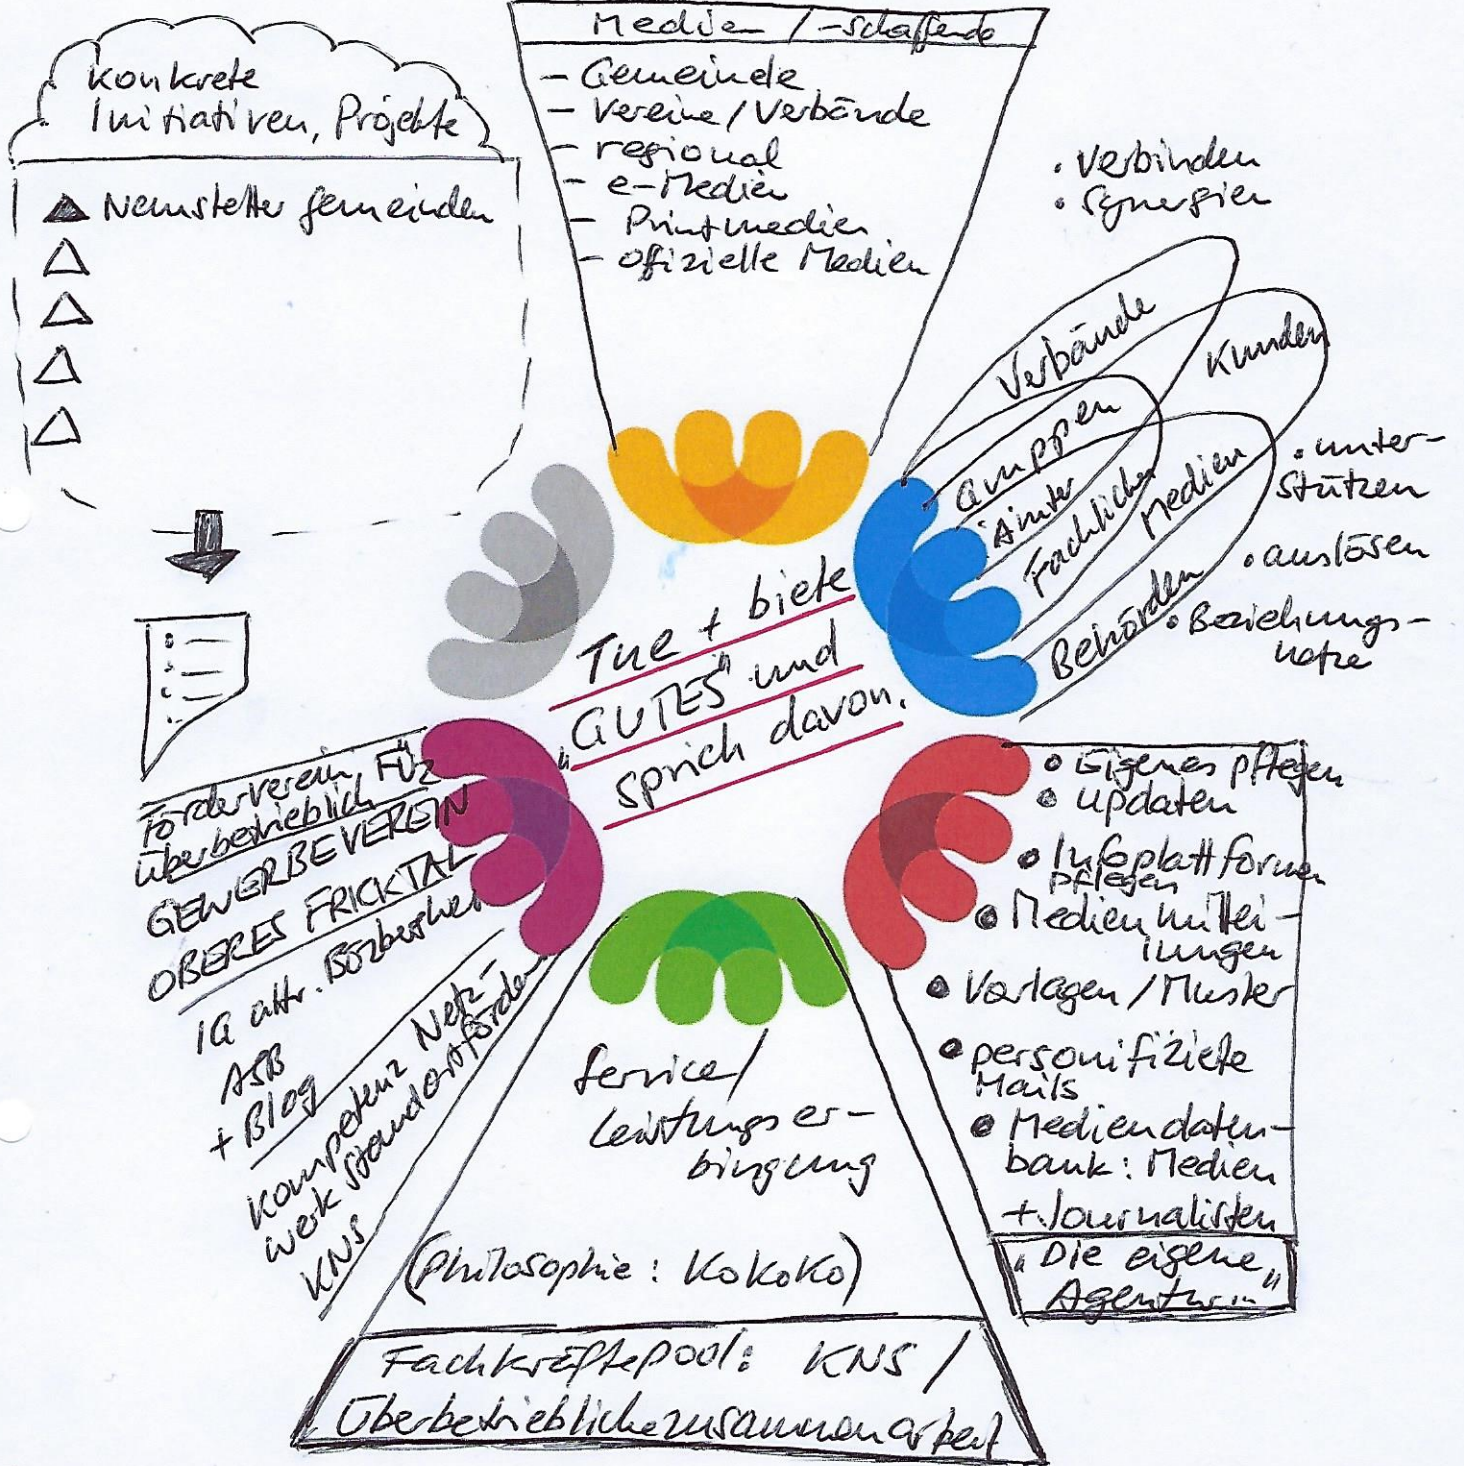 Konkrete
Initiativen, Projekte
Gemeinden
Medien / -schaffende
- Gemeinde
- Vereine / Verbände
- regional
- e-Medien
- Printmedien
- offizielle Medien
• Verbinden
• Synergien
Verbände
Kunden
Gruppen
Ämter
Fachlicher
Medien
Behörden
• unter-
stützen
• auslösen
• Beziehungs-
netze
Tue + biete
"GUTES" und
sprich davon.
Förderverein, Für
überbetrieblich
GEWERBEVEREIN
OBERES FRICKTAL
IG attr.
ASB
+ Blog
Kompetenz Netz-
werk Standortförder
KNS
• Eigenes pflegen
• updaten
• Infoplattformen
pflegen
• Medienmittei-
lungen
• Vorlagen / Muster
• personifiziete
Mails
• Mediendaten-
bank: Medien
+ Journalisten
"Die eigene
Agentur..."
Service /
Leistungser-
bingung
(Philosophie: KoKoKo)
Fachkräftepool: KNS /
Überbetrieblichezusammenarbeit